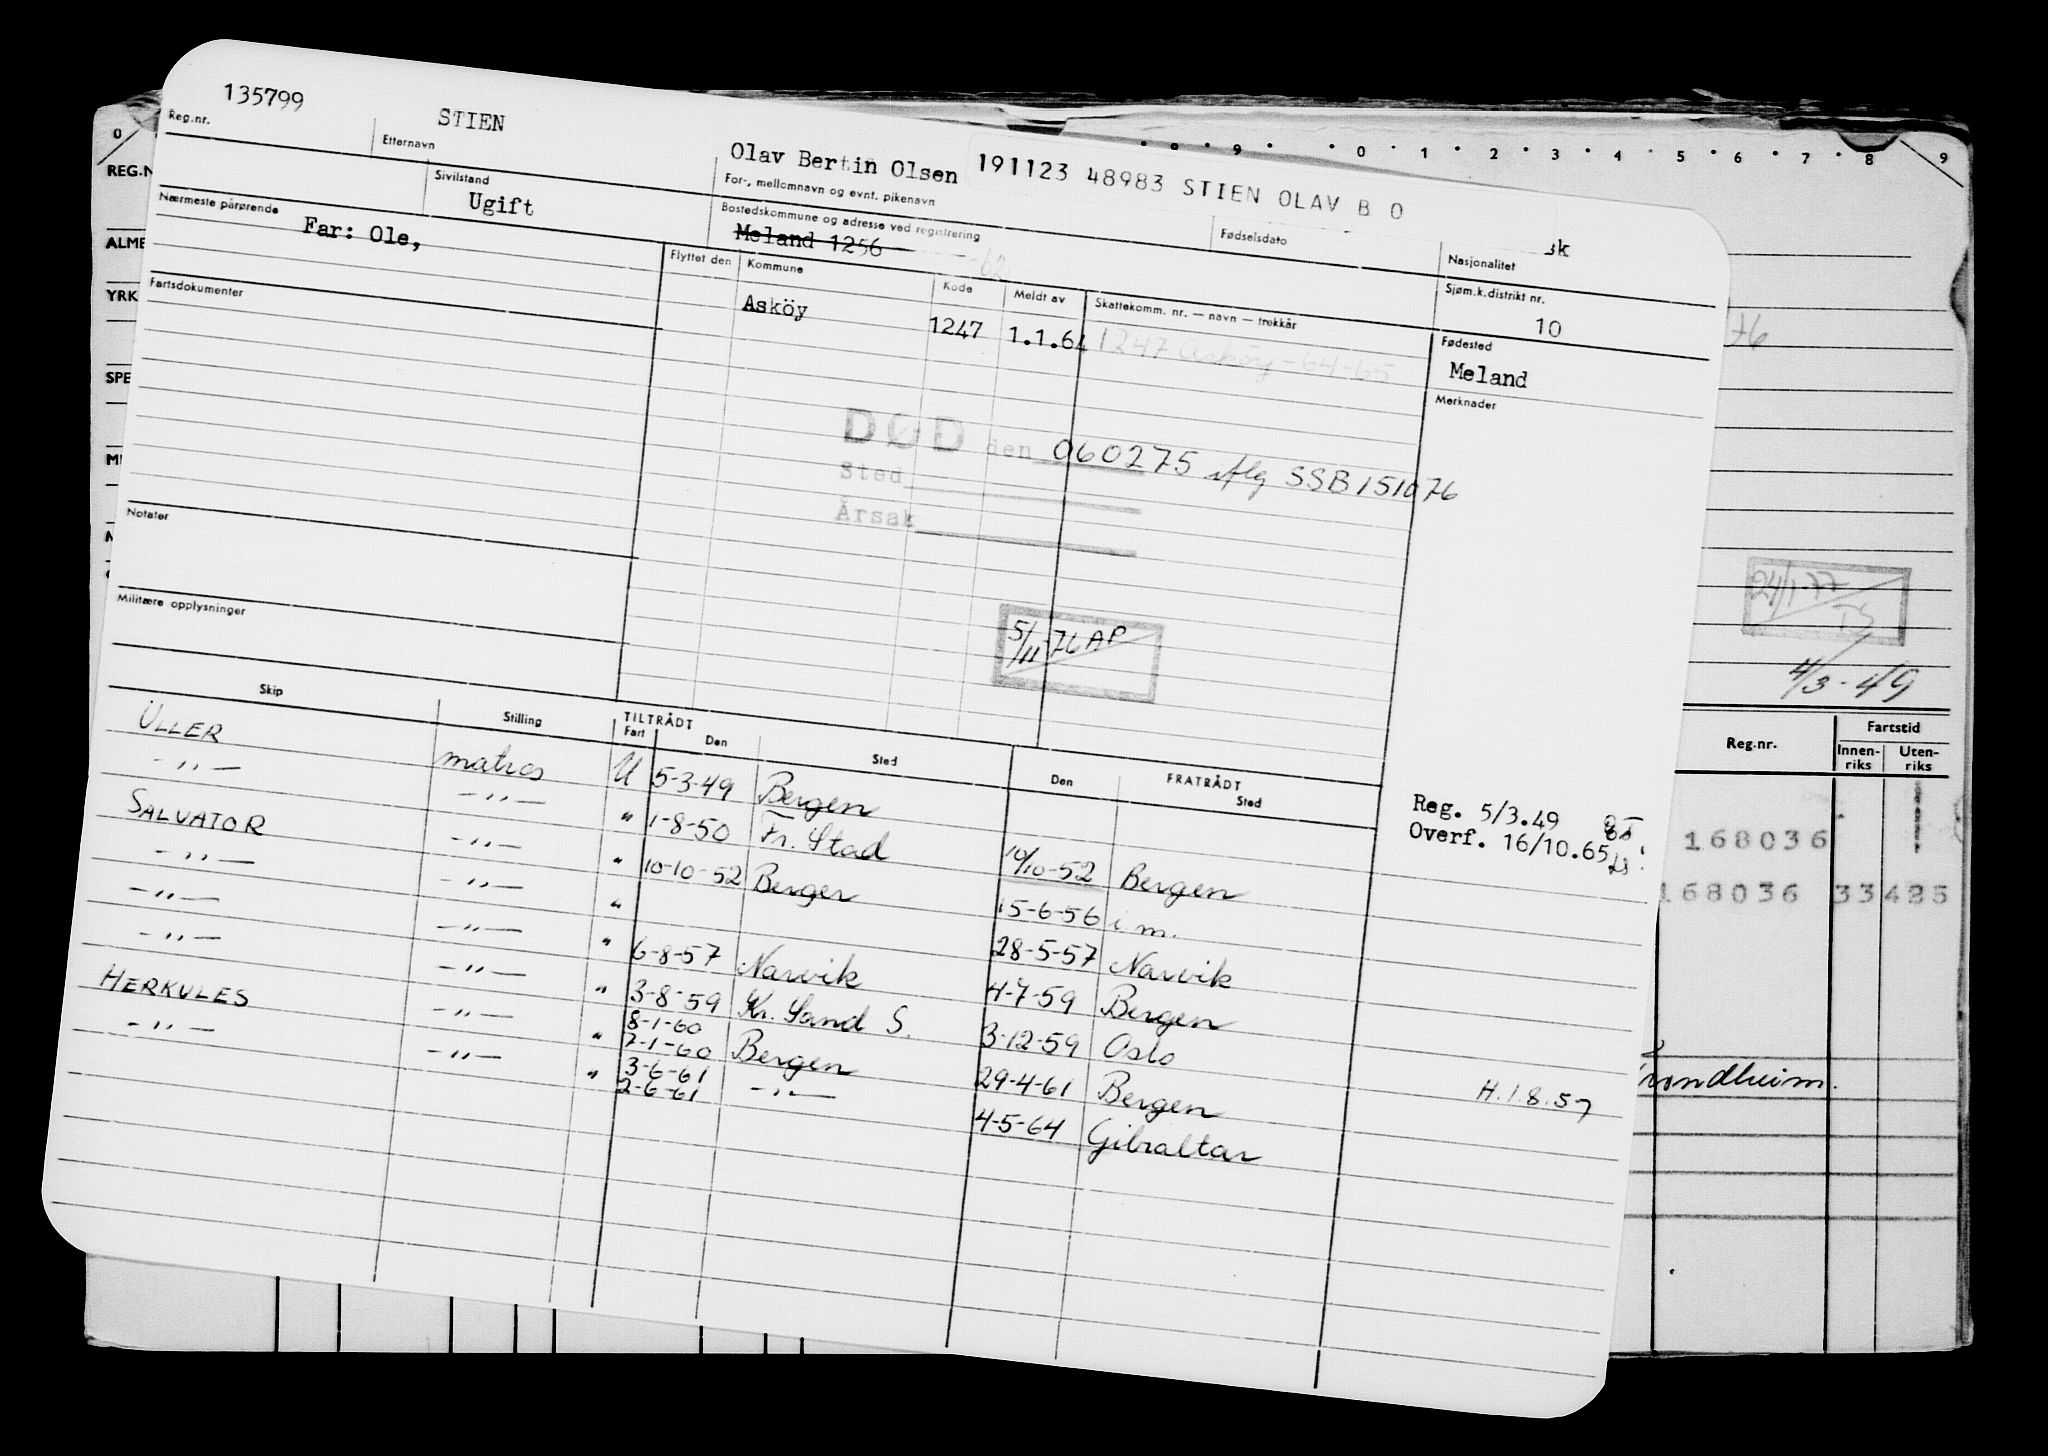 135799
STIEN
Olav Bertin Olsen
191123 48983 STIEN OLAV B O
Reg.nr.
Etternavn
For-, mellomnavn og evnt. pikenavn
Fødselsdato
Nasjonalitet
sk
Sivilstand
Ugift
Bostedskommune og adresse ved registrering
Meland 1256
62
Sjøm.k.distrikt nr.
10
Nærmeste pårørende
Far: Ole,
Flyttet den
Kommune
Kode
Meldt av
Skattekomm. nr. — navn — trekkår
Fødested
Asköy
1247
1.1.64
1247 Asköy-64-65
Meland
Fartsdokumenter
Merknader
DØD den 060275 iflg SSB 151076
Sted
Årsak
Notater
Militære opplysninger
5/11 76 AP
Skip
Stilling
TILTRÅDT
Fart
Den
Sted
Den
FRATRÅDT
Sted
ULLER matros U 5-3-49 Bergen
-"- -"- " 1-8-50 Fr. Stad 10/10-52 Bergen
SALVATOR -"- " 10-10-52 Bergen 15-6-56 i m.
-"- -"- " 28-5-57 Narvik
-"- -"- " 6-8-57 Narvik 4-7-59 Bergen
-"- -"- " 3-8-59 Kr. Sand S. 3-12-59 Oslo
HERKULES -"- " 8-1-60
7-1-60 Bergen 29-4-61 Bergen
-"- -"- " 3-6-61
2-6-61 -"- 4-5-64 Gibraltar
Reg. 5/3.49
Overf. 16/10.65
H.1.8.57
0
9 0 1 2 3 4 5 6 7 8 9
REG.N
ALME
YRK
SPE
76
24/1-77
TS
4/3-49
Reg.nr.
Fartstid
Innen-
riks
Uten-
riks
168036
168036 33 425
rondheim.